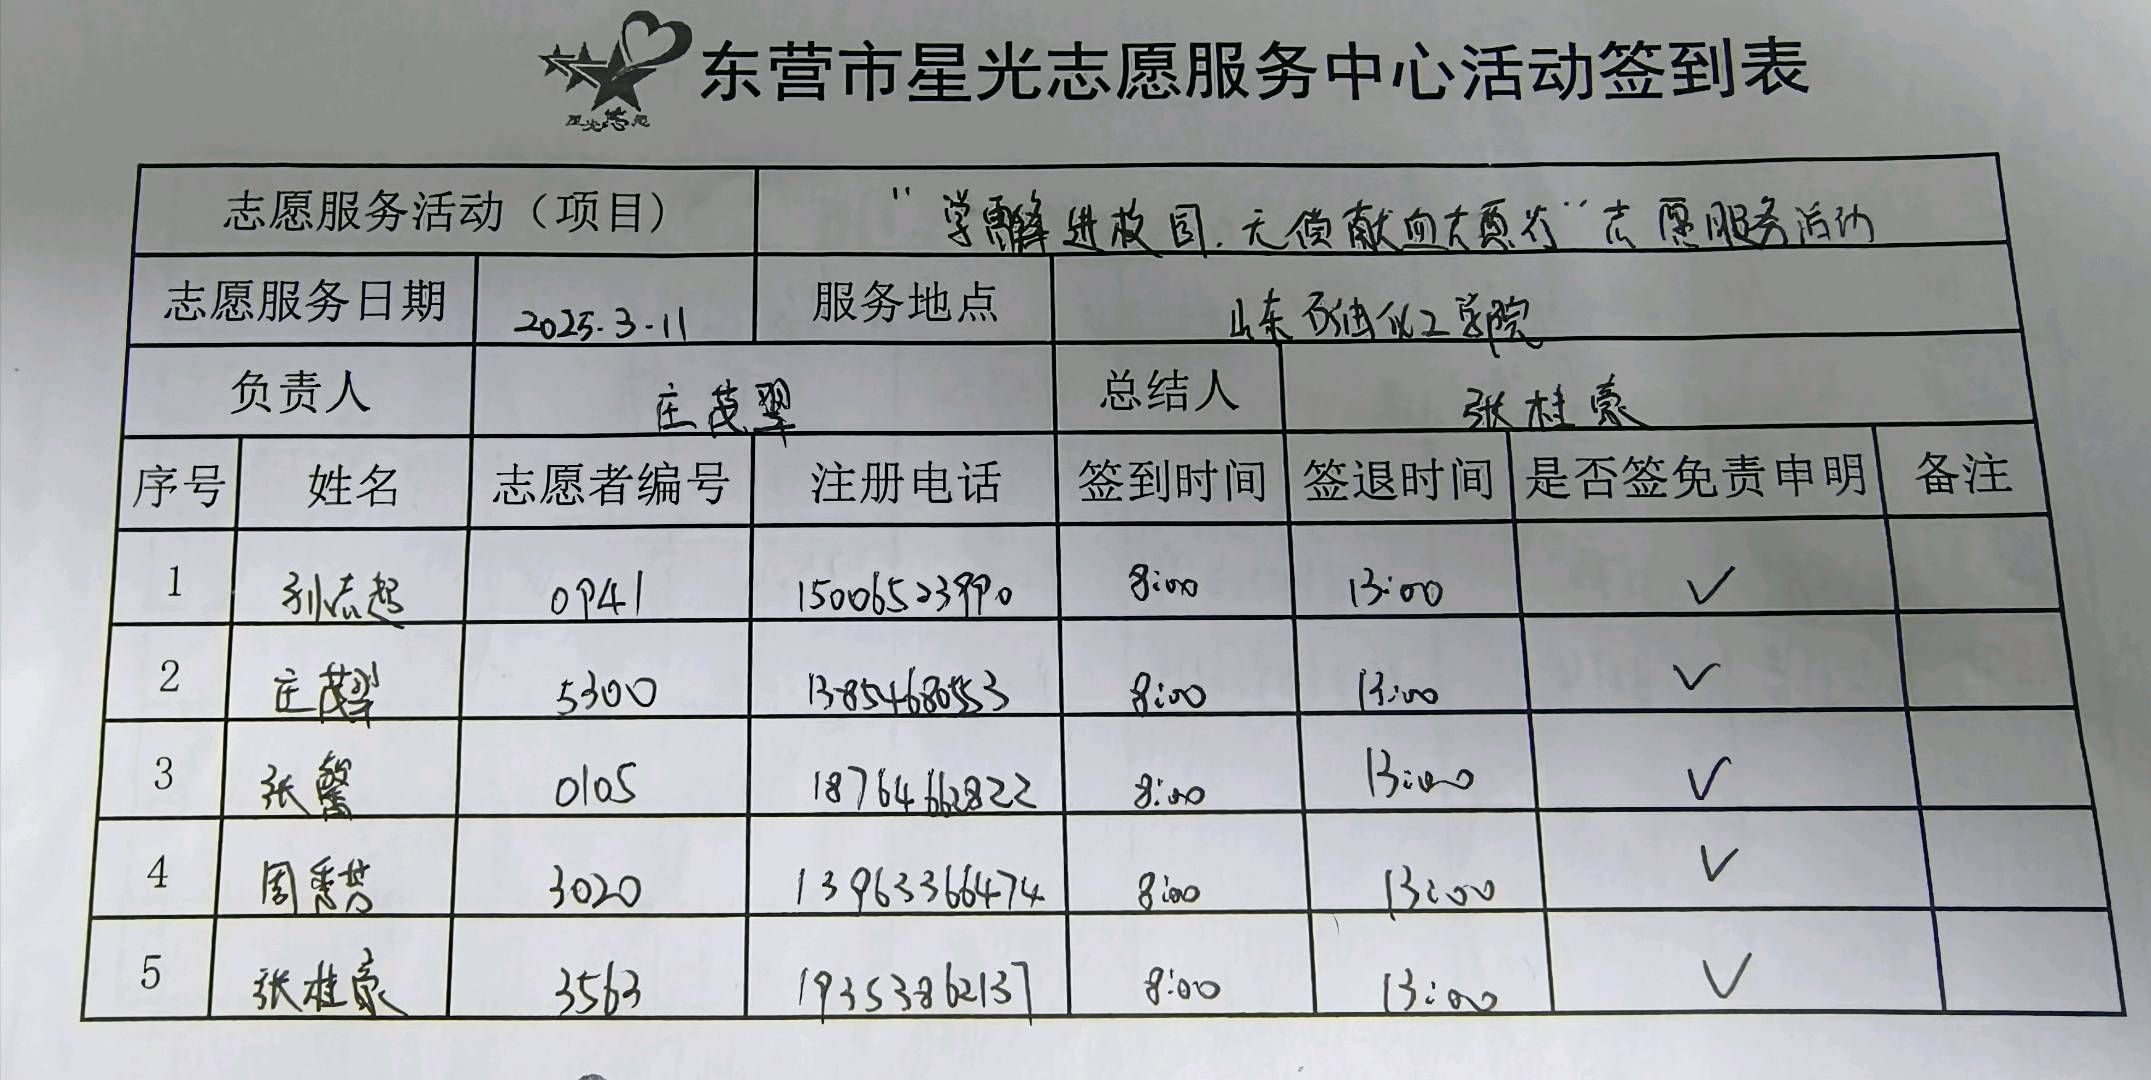 星光志愿
东营市星光志愿服务中心活动签到表
志愿服务活动（项目） “学雷锋进校园.无偿献血志愿行”志愿服务活动
志愿服务日期 2025.3.11 服务地点 山东石油化工学院
负责人 庄茂翠 总结人 张桂豪
序号 姓名 志愿者编号 注册电话 签到时间 签退时间 是否签免责申明 备注
1 孙志超 0941 15006523990 8:00 13:00 ✓
2 庄茂翠 5300 13854680553 8:00 13:00 ✓
3 张馨 0105 18764662822 8:00 13:00 ✓
4 周 3020 13963366474 8:00 13:00 ✓
5 张桂豪 3563 19353862137 8:00 13:00 ✓